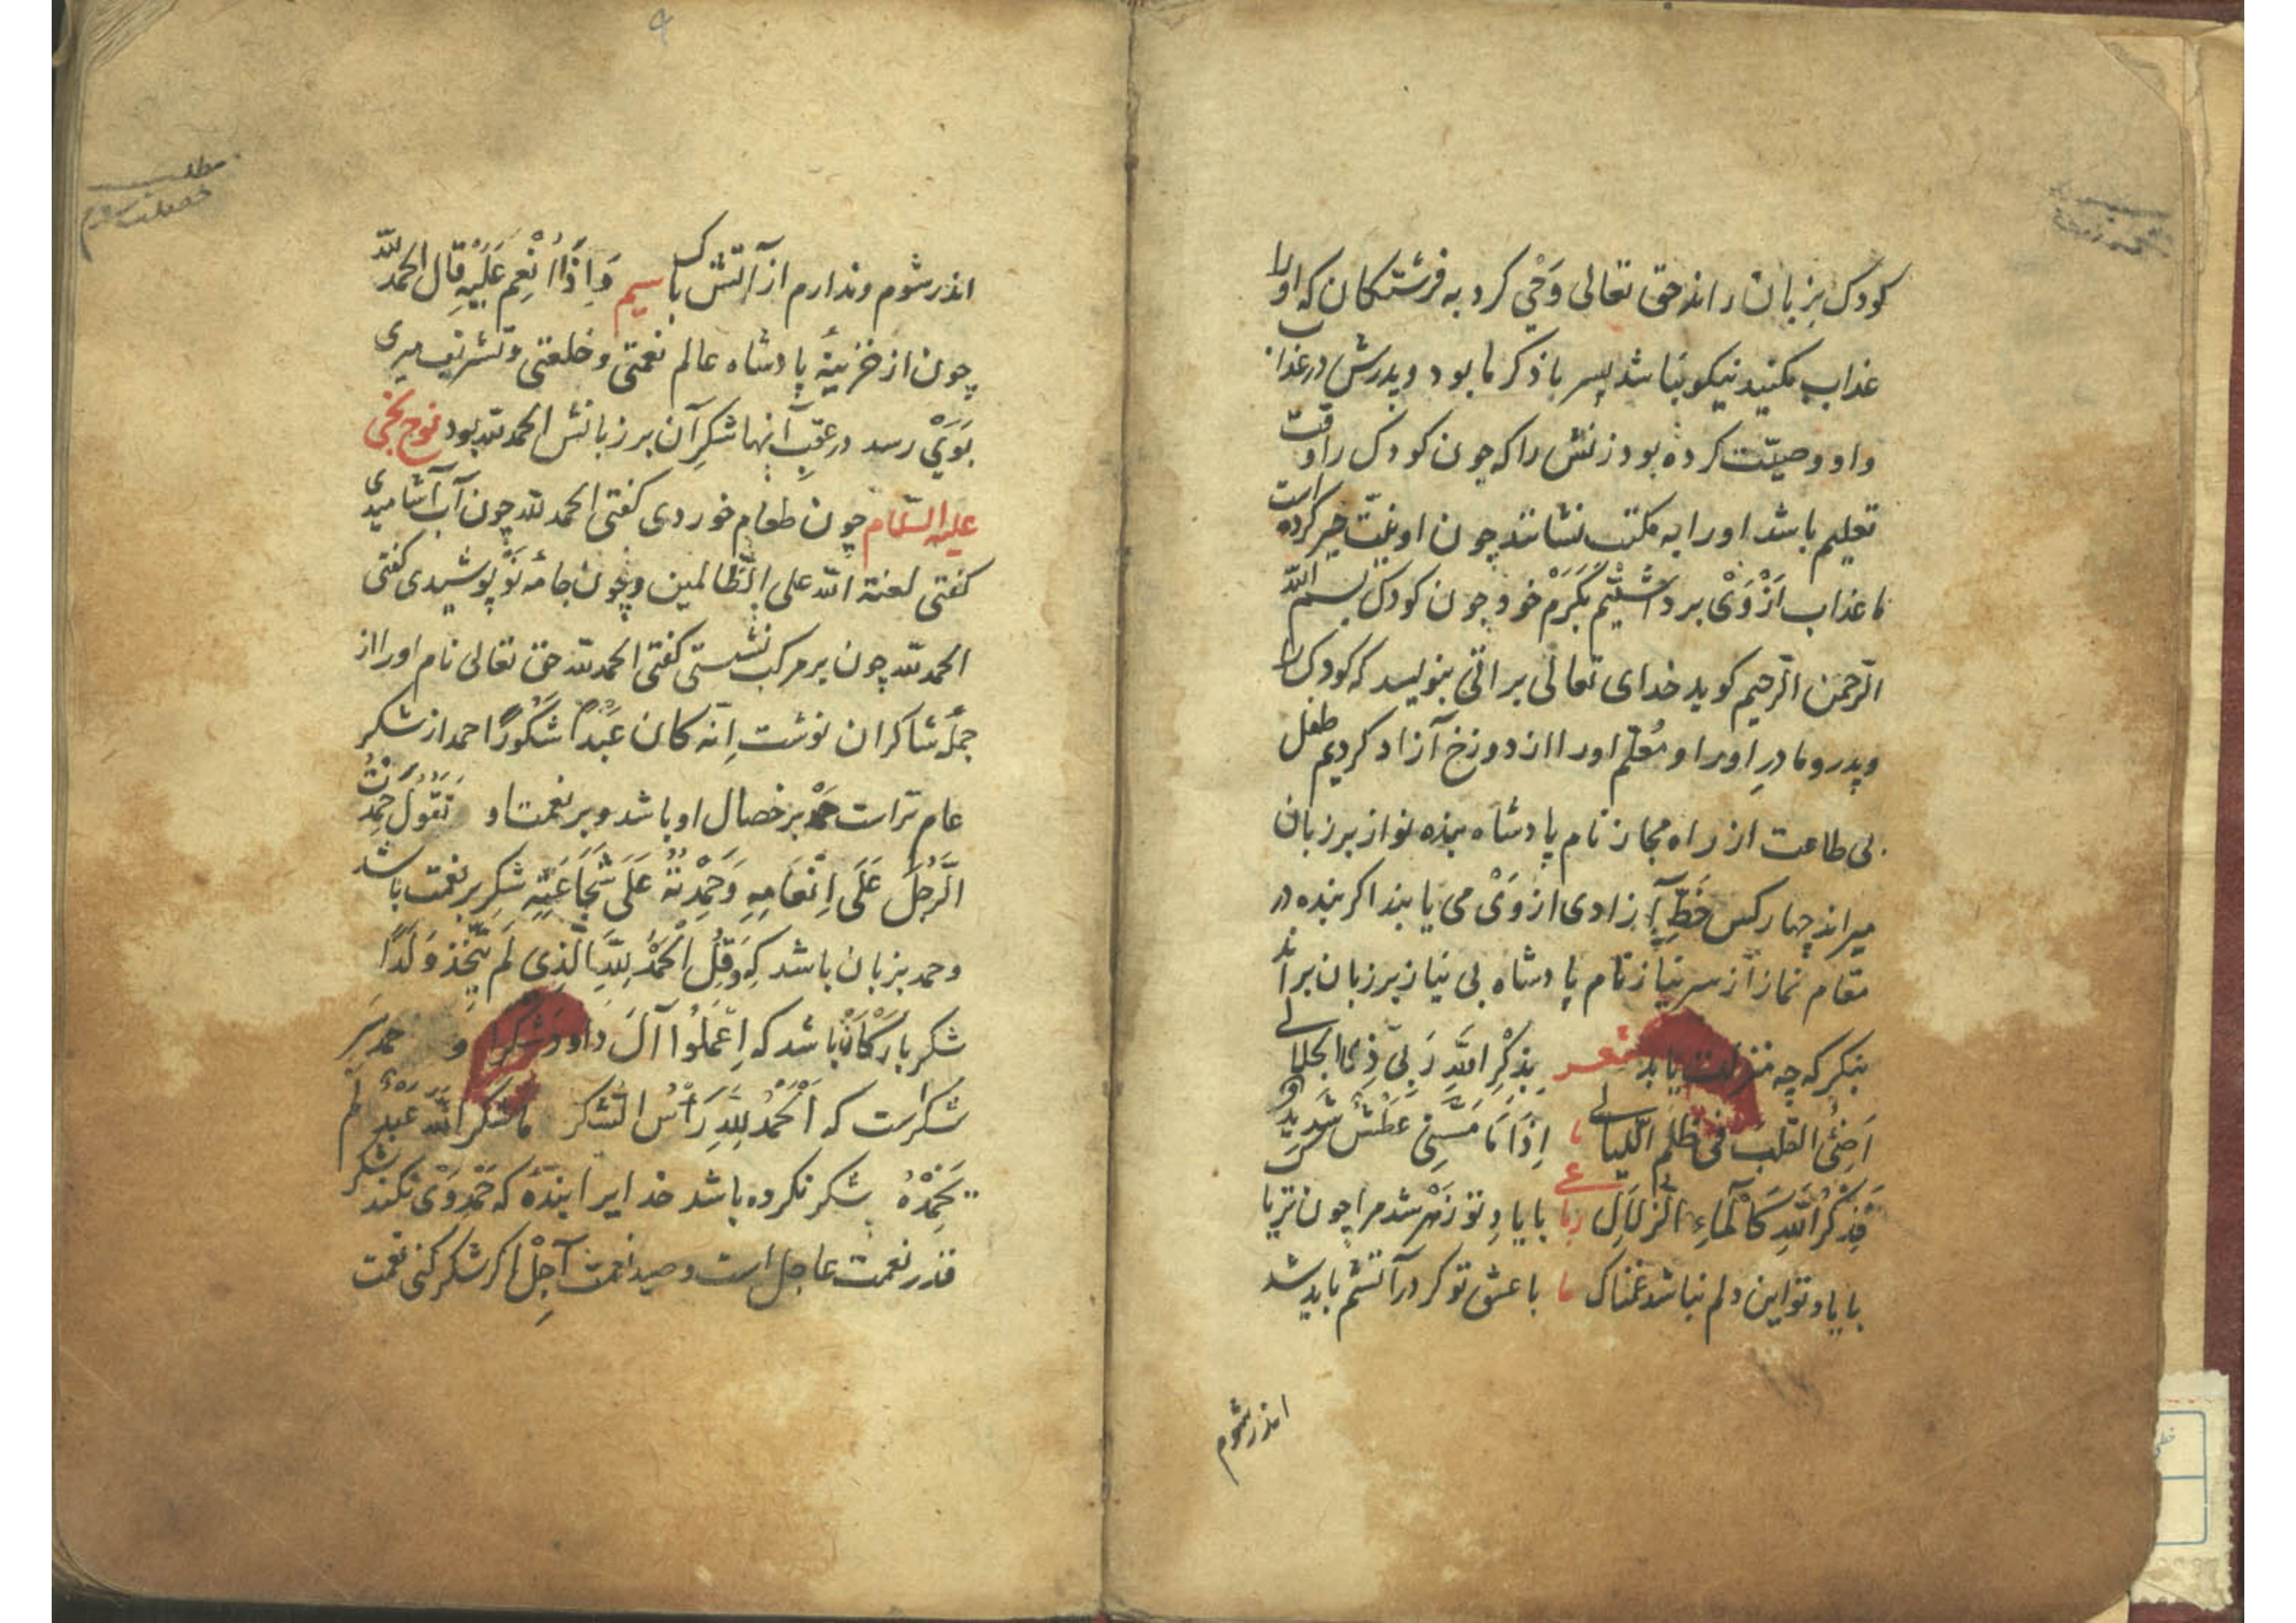 کودک بزبان راند حق تعالی وَحْی کرد به فرشتکان که اورا
عذاب مکنید نیکو نباشد پسر با ذکر ما بود و پدرش در عذاب
واو وصیّت کرده بود زنش را که چون کودک را وقت
تعلیم باشد اورا به مکتب نشانند چون او نیّت خیر کرده است
ما عذاب اَزْوَیْ برداشتیم بکَرَمْ خود چون کودک بسم الله
الرّحمن الرّحیم کوید خدای تعالی براتی بنویسد که کودک را
و پدر و مادرِ اورا و مُعلّم اورا از دوزخ آزاد کردیم طفل
بی طاعت از راه مجاز نام پادشاه بنده نواز بر زبان
میراند چهار کس خَطِّ آزادی از وَیْ می یابند اکر بنده در
مقام نماز از سر نیاز نام پادشاه بی نیاز بر زبان براند
بنکر که چه منزلت یابد شعر بِذِکْرِ اللّٰهِ رَبّی ذِی الجلالی
اَضِئُ القلبَ فی ظُلَمِ اللّیالی اِذَا مَا مَسَّنِی عَطَشٌ شَدیدٌ
فَذِکْرُ اللّٰهِ کَالْمَاءِ الزّلالِ با یادِ تو زَهْر شد مرا چون تریاک
با یاد تو این دلم نباشد غمناک با عشق تو کر در آتشم باید شد
اندرشوم
مطلب
خصلت سوم
اندر شوم و ندارم از آتش باک سیم وَاِذَا اُنْعِمَ عَلَیْهِ قال الحمد للّه
چون از خزینهٔ پادشاه عالم نعمتی و خلعتی و تشریف میری
بَوَیْ رسد در عقبِ آنها شکرِ آن بر زبانش الحمد للّه بود نوح نجی
علیه السّلام چون طعام خوردی کفتی الحمد للّه چون آب آشامیدی
کفتی لعنة اللّه علی الظّالمین و چون جامهٔ نَوْ پوشیدی کفتی
الحمد للّه چون بر مرکب نشستی کفتی الحمد للّه حق تعالی نام اورا از
جملهٔ شاکران نوشت اِنّه کان عَبْدًا شَکُورًا حمد از شکر
عام تر است حمد بر خصال او باشد و بر نعمت او تَقُولُ حَمِدْتُ
الرَّجُلَ عَلَی اِنْعَامِهِ وَحَمِدْتُهُ عَلَی شَجَاعَتِهِ شکر بر نعمت باشد
و حمد بزبان باشد که وَقُلِ الْحَمْدُ لِلّٰهِ الَّذِی لَمْ یَتَّخِذْ وَلَدًا
شکر بارکان باشد که اِعْمَلُوا آلَ داود شکرا و حمد سَرِ
شکر است که اَلْحَمْدُ لِلّٰهِ رَأسُ الشکر ما شکر اللّهَ عَبْدٌ لَمْ
یَحْمِدْهُ شکر نکرده باشد خدایرا بندهٔ که حَمْدِ وَیْ نکند شکر
قذر نعمت عاجل است و صید نعمت آجِلْ اکر شکر کنی نعمت